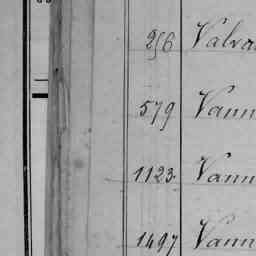 256 Valva
579 Vann
1123. Vann
1497 Vann